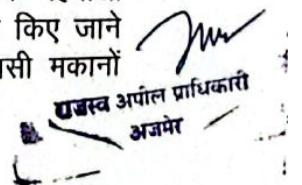 किए जाने
सी मकानों
राजस्व अपील प्राधिकारी
अजमेर